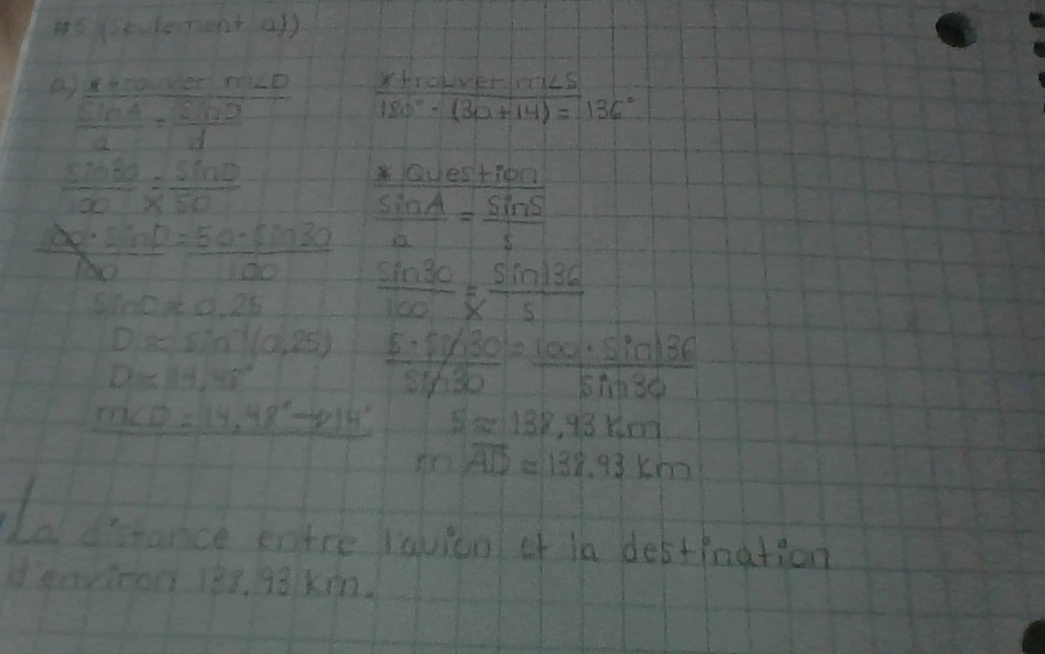 #6 (seulement a))
a) * trouver m∠D
sinA/a = sinD/d
sin30/100 × sinD/50
100·sinD/100 = 50·sin30/100
sinD ≈ 0,25
D ≈ sin⁻¹(0,25)
D ≈ 14,48°
m∠D = 14,48° → 14°
* trouver m∠S
180° - (30+14) = 136°
* Question
sinA/a = sinS/s
sin30/100 = sin136/s
×
s·sin30/sin30 = 100·sin136/sin30
s ≈ 138,93 km
m AD = 138,93 km
La distance entre l'avion et la destination
d'environ 138,93 km.